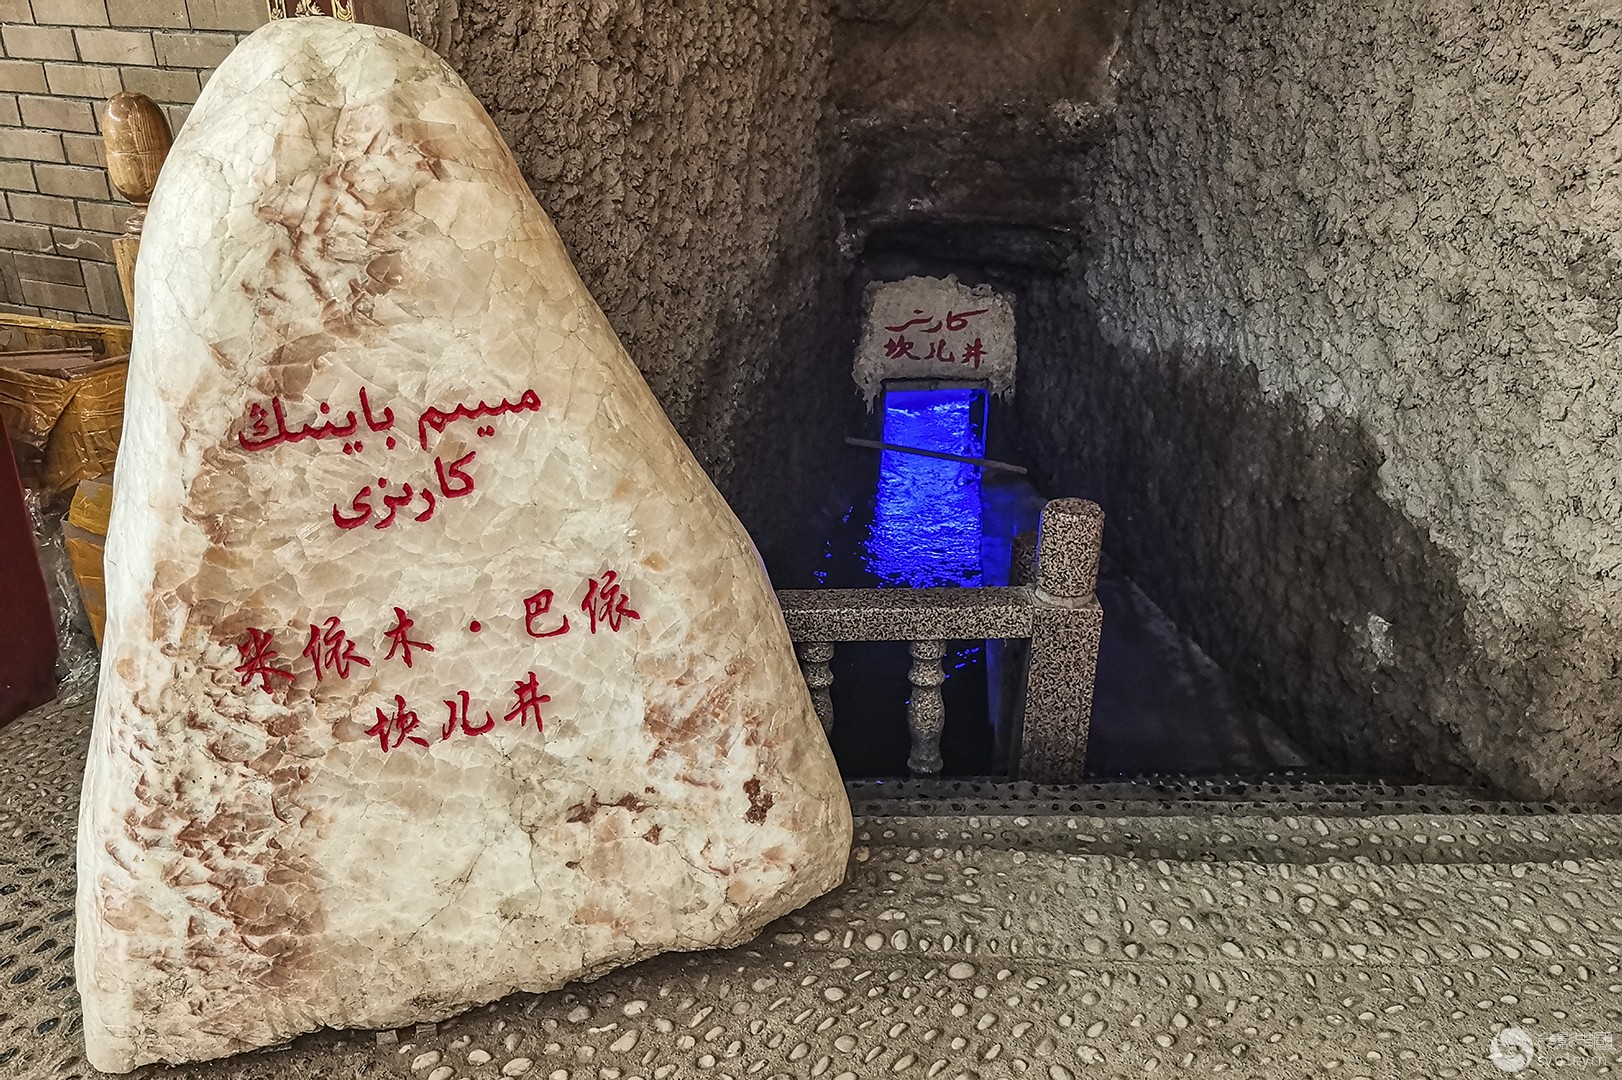 مىيىم باينىڭ
كارىزى
米依木·巴依
坎儿井
كارىز
坎儿井